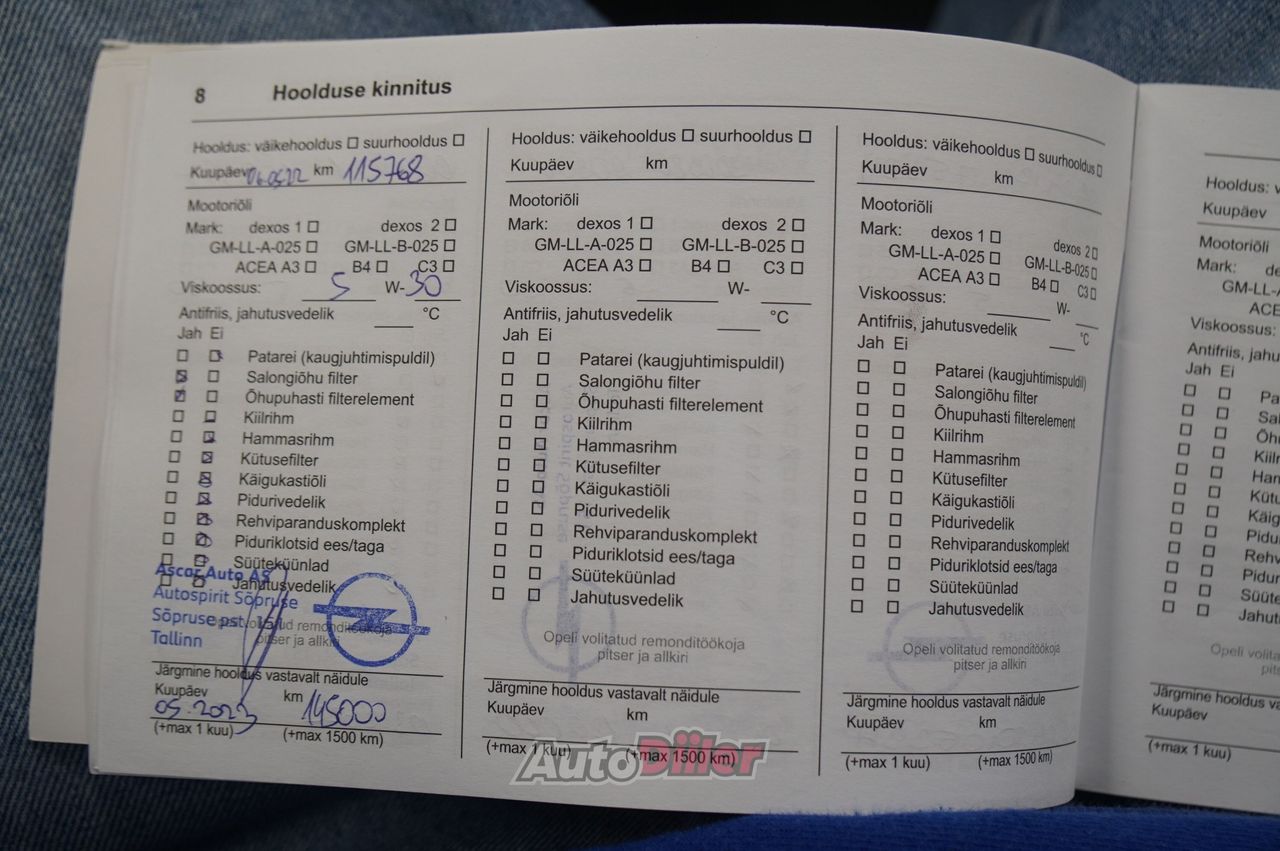 8 Hoolduse kinnitus
Hooldus: väikehooldus □ suurhooldus □
Kuupäev 06.05.22 km 115768
Mootoriõli
Mark: dexos 1 □ dexos 2 □
GM-LL-A-025 □ GM-LL-B-025 □
ACEA A3 □ B4 □ C3 □
Viskoossus: 5 W-30
Antifriis, jahutusvedelik ___ °C
Jah Ei
Patarei (kaugjuhtimispuldil)
Salongiõhu filter
Õhupuhasti filterelement
Kiilrihm
Hammasrihm
Kütusefilter
Käigukastiõli
Pidurivedelik
Rehviparanduskomplekt
Piduriklotsid ees/taga
Süüteküünlad
Jahutusvedelik
Ascar Auto AS
Autospirit Sõpruse
Sõpruse pst.
Tallinn
Opeli volitatud remonditöökoja
pitser ja allkiri
Järgmine hooldus vastavalt näidule
Kuupäev km
05.2023 145000
(+max 1 kuu) (+max 1500 km)
Hooldus: väikehooldus □ suurhooldus □
Kuupäev km
Mootoriõli
Mark: dexos 1 □ dexos 2 □
GM-LL-A-025 □ GM-LL-B-025 □
ACEA A3 □ B4 □ C3 □
Viskoossus: ___ W- ___
Antifriis, jahutusvedelik ___ °C
Jah Ei
Patarei (kaugjuhtimispuldil)
Salongiõhu filter
Õhupuhasti filterelement
Kiilrihm
Hammasrihm
Kütusefilter
Käigukastiõli
Pidurivedelik
Rehviparanduskomplekt
Piduriklotsid ees/taga
Süüteküünlad
Jahutusvedelik
Opeli volitatud remonditöökoja
pitser ja allkiri
Järgmine hooldus vastavalt näidule
Kuupäev km
(+max 1 kuu) (+max 1500 km)
Hooldus: väikehooldus □ suurhooldus □
Kuupäev km
Mootoriõli
Mark: dexos 1 □ dexos 2 □
GM-LL-A-025 □ GM-LL-B-025 □
ACEA A3 □ B4 □ C3 □
Viskoossus: ___ W- ___
Antifriis, jahutusvedelik ___ °C
Jah Ei
Patarei (kaugjuhtimispuldil)
Salongiõhu filter
Õhupuhasti filterelement
Kiilrihm
Hammasrihm
Kütusefilter
Käigukastiõli
Pidurivedelik
Rehviparanduskomplekt
Piduriklotsid ees/taga
Süüteküünlad
Jahutusvedelik
Opeli volitatud remonditöökoja
pitser ja allkiri
Järgmine hooldus vastavalt näidule
Kuupäev km
(+max 1 kuu) (+max 1500 km)
Hooldus: v
Kuupäev
Mootoriõli
Mark: de
GM-L
ACE
Viskoossus:
Antifriis, jahu
Jah Ei
Pa
Sal
Õh
Kiilr
Ham
Kütu
Käig
Pidu
Rehv
Pidu
Süüte
Jahut
Opeli volita
pits
Järgmine hooldus va
Kuupäev
(+max 1 kuu)
AutoDiiler